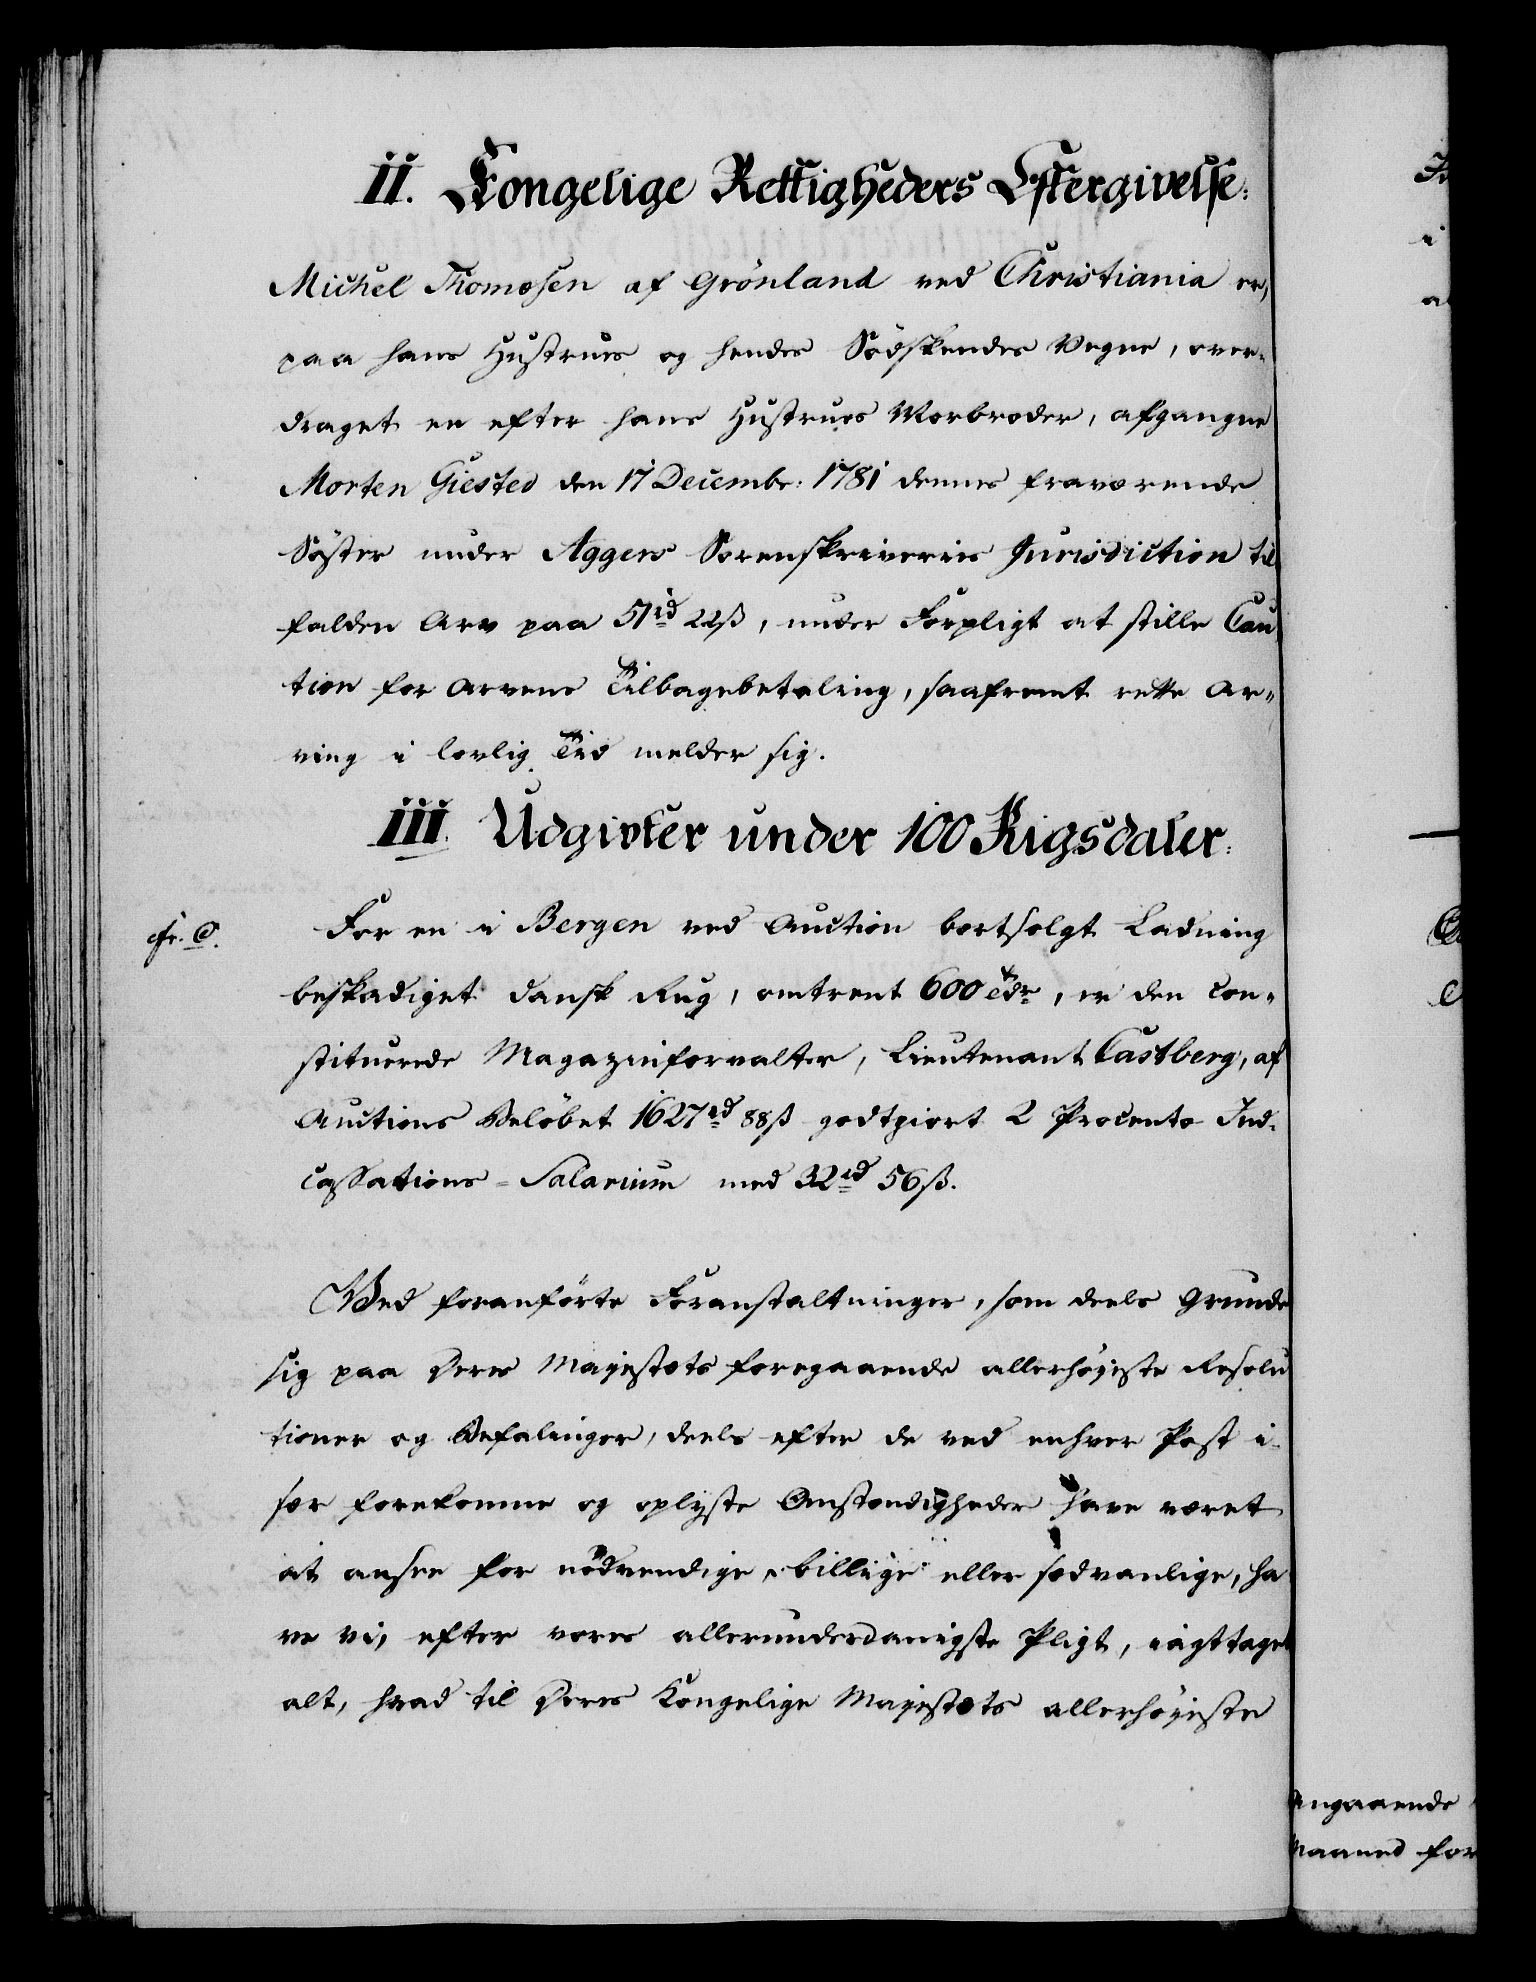 II. Kongelige Rettigheders Eftergivelse.
Michel Thomæsen af Grönland ved Christiania er,
paa hans Hustrues og hendes Södskendes Vegne, over-
draget en efter hans Hustrues Morbroder, afgangne
Morten Giested den 17 Decembr: 1781 dennes fraværende
Söster under Aggers Sorenskriveries Jurisdiction til
falden Arv paa 51 rd 22 ß, under Forpligt at stille Cau
tion for Arvens Tilbagebetaling, saafremt rette Ar-
ving i lovlig Tiid melder sig.
III. Udgivter under 100 Rigsdaler.
cfr. O.
For en i Bergen ved Auction bortsolgt Ladning
beskadiget dansk Rug, omtrent 600 Tdr, er den Con-
stituerede Magazinforvalter, Lieutenant Castberg, af
Auctions Belöbet 1627 rd 88 ß godtgiort 2 Procento Ind-
cassations-Salarium med 32 rd 56 ß.
Ved foranförte Foranstaltninger, som deels grunde
sig paa Deres Majestæts foregaaende allerhöjeste Resolu
tioner og Befalinger, deels efter de ved enhver Post i-
sær forekomne og oplyste Omstændigheder have været
at ansee for nödvendige, billige eller sædvanlige, ha
ve vi, efter vores allerunderdanigste Pligt, iagttaget
alt, hvad til Deres Kongelige Majestæts allerhöjeste
angaaende
Maaned for